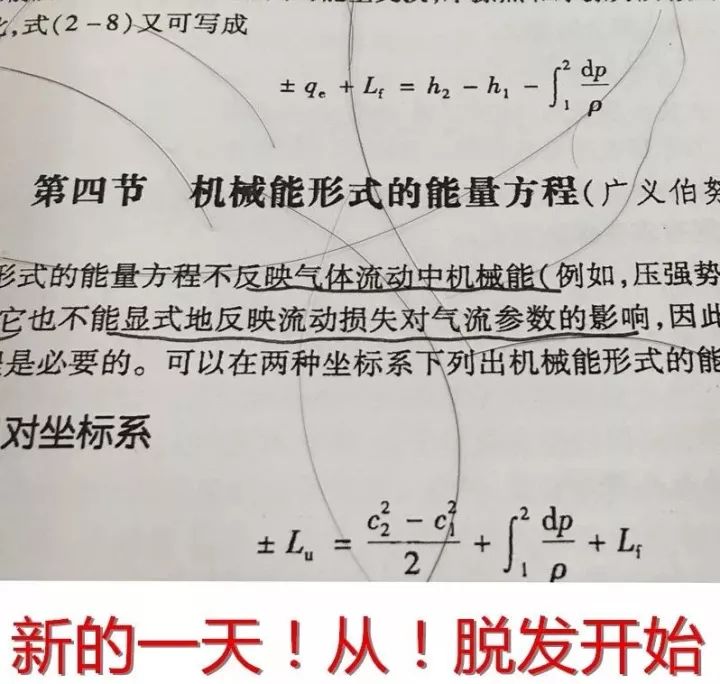 式(2-8)又可写成
± qₑ + L_f = h₂ - h₁ - ∫₁² dp/ρ
第四节 机械能形式的能量方程(广义伯努
形式的能量方程不反映气体流动中机械能(例如,压强势
它也不能显式地反映流动损失对气流参数的影响,因此
是必要的。可以在两种坐标系下列出机械能形式的能
对坐标系
± Lᵤ = (c₂² - c₁²)/2 + ∫₁² dp/ρ + L_f
新的一天!从!脱发开始